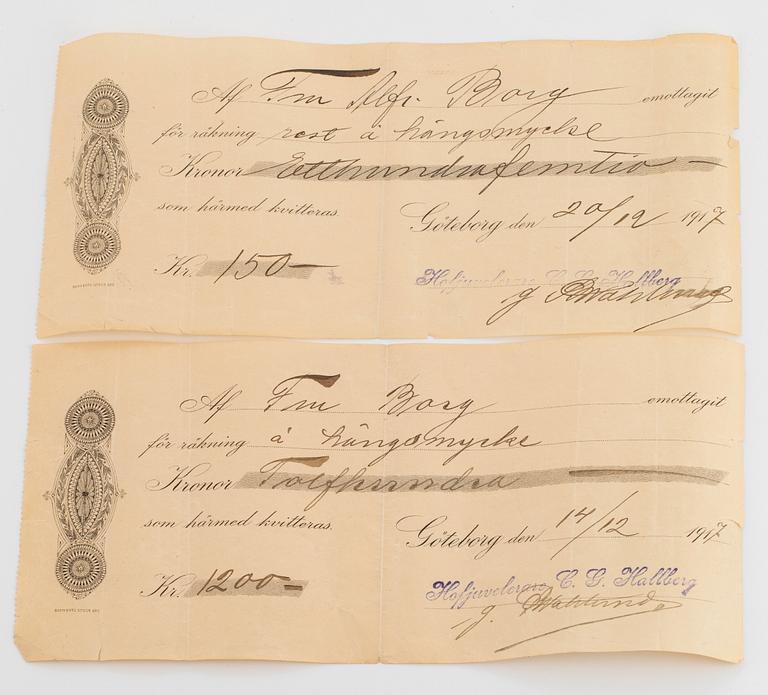 Af Fru Alfr. Borg emottagit
för räkning rest å hängsmycke
Kronor Etthundrafemtio —
som härmed kvitteras.
Göteborg den 20/12 1917
Kr. 150 —
Hofjuvelerare C. G. Hallberg
g
Af Fru Borg emottagit
för räkning å hängsmycke
Kronor Tolfhundra —
som härmed kvitteras.
Göteborg den 14/12 1917
Kr. 1200 —
Hofjuvelerare C. G. Hallberg
g. Wahlund